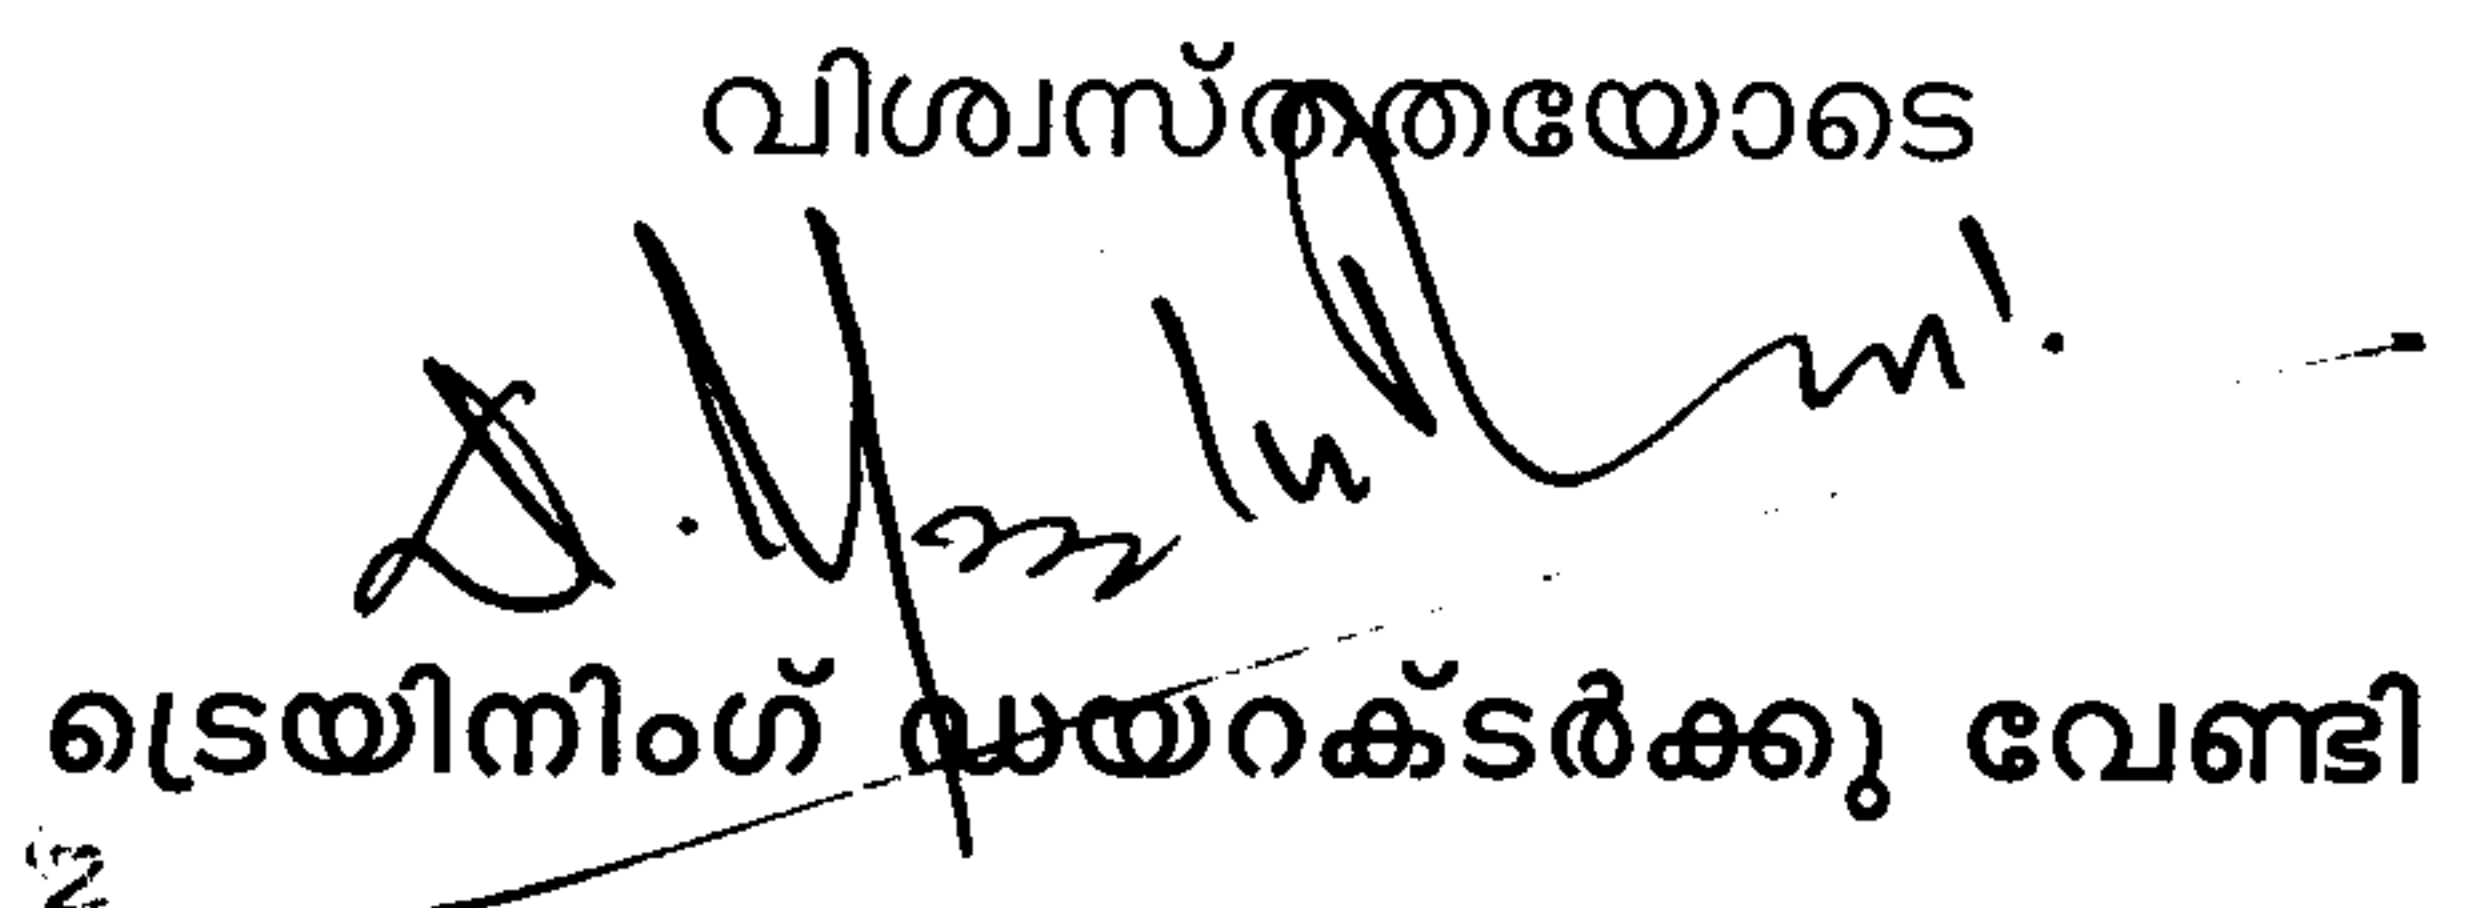 വിശ്വസ്തതയോടെ
ട്രെയിനിംഗ് ഡയറക്ടർക്കു വേണ്ടി